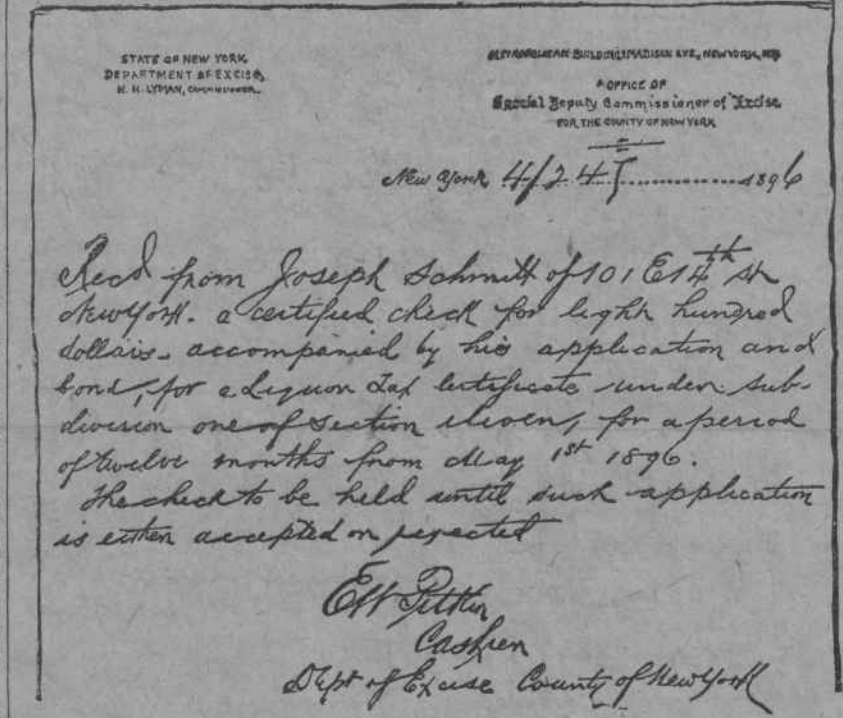 STATE OF NEW YORK
DEPARTMENT OF EXCISE,
H. H. LYMAN, COMMISSIONER.
METROPOLITAN BUILDING, MADISON AVE., NEW YORK,
OFFICE OF
Special Deputy Commissioner of Excise
FOR THE COUNTY OF NEW YORK
New York 4/24 1896
Recd from Joseph Schmitt of 101 E 14th St
New York. a certified check for Eight hundred
dollars. accompanied by his application and
bond, for a Liquor Tax Certificate under sub-
division one of section eleven, for a period
of twelve months from May 1st 1896.
The check to be held until such application
is either accepted or rejected
Pitkin
Cashier
Dept of Excise County of New York